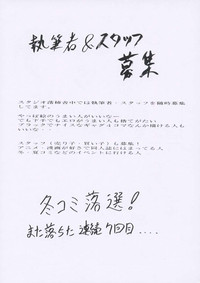 執筆者&スタッフ
募集
スタジオ落柿舎中では執筆者・スタッフを随時募集
してます。
やっぱ絵のうまい人がいいなー
でも下手でもエロがうまい人も捨てがたい
ブラックでナイスなギャグ4コマなんか描ける人も
いいな・・・
スタッフ(売り子・買い子)も募集!
アニメ・漫画が好きで同人誌にはまってる人
冬・夏コミなどのイベントに行ける人
冬コミ落選!
また落ちた連続7回目....